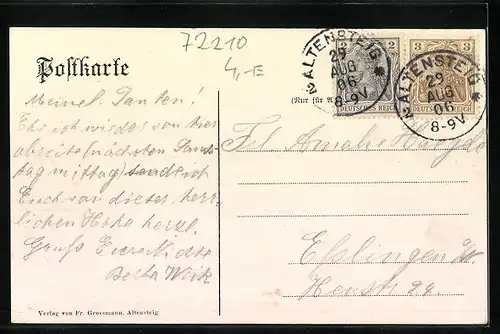 72210
4,-E
Postkarte
(Nur für
Meine l. Tanten!
Ehe ich wieder von hier
abreise (nächsten Sams-
tag mittag) sende ich
Euch von dieser herr-
lichen Höhe herzl.
Gruß Eure Nichte
Berta
ALTENSTEIG
29
AUG
06
8-9V
2
DEUTSCHES REICH
ALTENSTEIG
29
AUG
06
8-9V
3
3
DEUTSCHES REICH
Frl. Amalie
Esslingen a/N.
24.
Verlag von Fr. Grossmann, Altensteig.